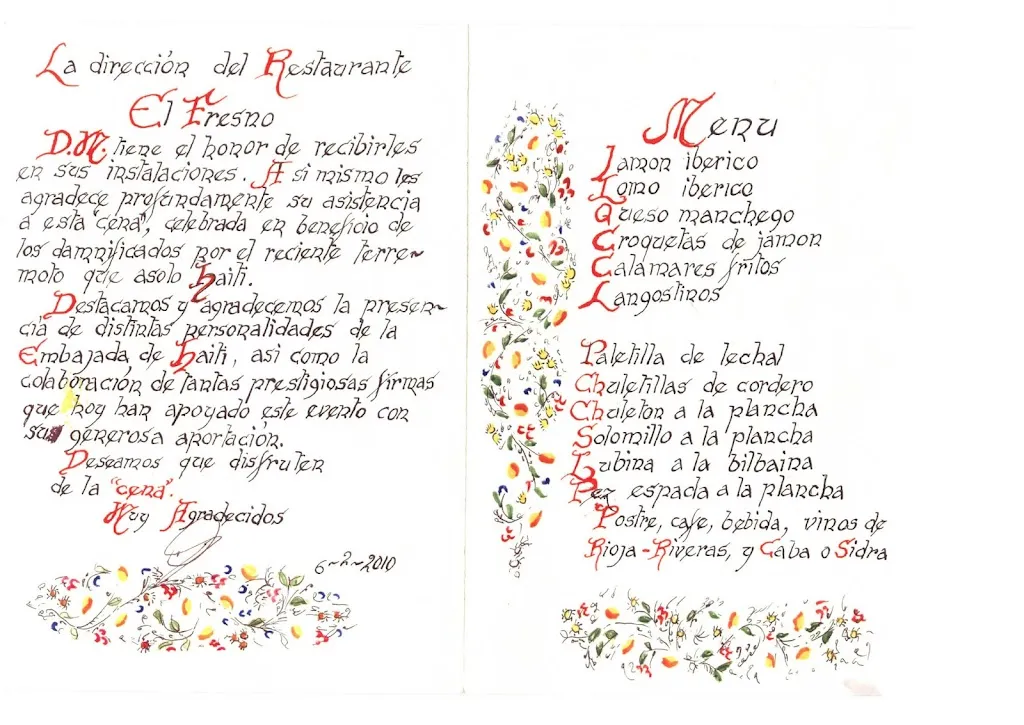 La dirección del Restaurante
El Fresno
D.M. tiene el honor de recibirles
en sus instalaciones. A si mismo les
agradece profundamente su asistencia
a esta "cena", celebrada en beneficio de
los damnificados por el reciente terre~
moto que asolo haiti.
Destacamos y agradecemos la presen~
cia de distintas personalidades de la
Embajada de haiti, asi como la
colaboración de tantas prestigiosas firmas
que hoy han apoyado este evento con
sus generosa aportación.
Deseamos que disfruten
de la "cena".
Muy Agradecidos
6~2~2010
Menu
Jamon iberico
Lomo iberico
Queso manchego
Croquetas de jamon
Calamares fritos
Langostinos
Paletilla de lechal
Chuletillas de cordero
Chuleton a la plancha
Solomillo a la plancha
Lubina a la bilbaina
Pez espada a la plancha
Postre, cafe, bebida, vinos de
Rioja-Riveras, y Caba o Sidra